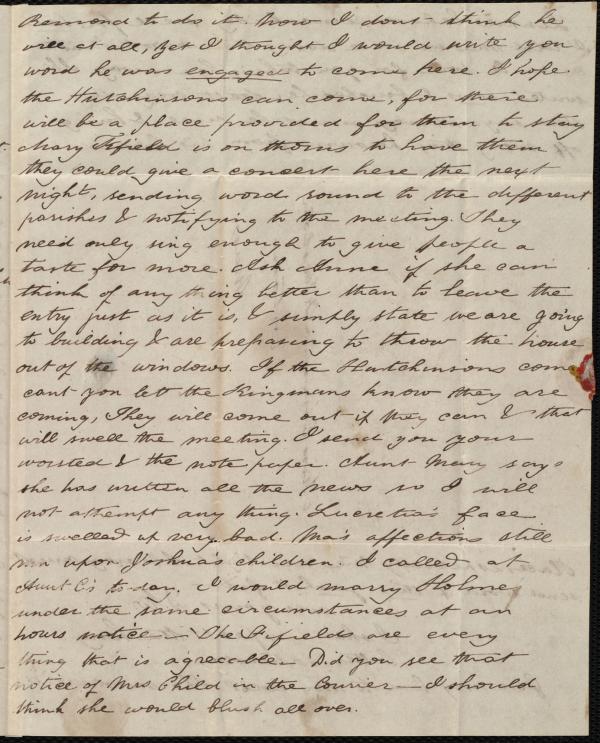 Remond to do it. Now I dont think he
will at all, yet I thought I would write you
word he was engaged to come here. I hope
the Hutchinsons can come, for there
will be a place provided for them to stay
Mary Fifield is on thorns to have them
they could give a concert here the next
night, sending word round to the different
parishes & notifying to the meeting. They
need only sing enough to give people a
taste for more. Ask Anne if she can
think of any thing better than to leave the
entry just as it is, & simply state we are going
to building & are preparing to throw the house
out of the windows. If the Hutchinsons come
cant you let the Kingmans know they are
coming, They will come out if they can & that
will swell the meeting. I send you your
worsted & the note paper. Aunt Mary says
she has written all the news so I will
not attempt any thing. Lucretia's face
is swelled up very bad. Ma's affections still
run upon Joshua's children. I called at
Aunt C's to-day. I would marry Holmes
under the same circumstances at an
hours notice — The Fifields are every
thing that is agreeable — Did you see that
notice of Mrs Child in the Courier — I should
think she would blush all over.